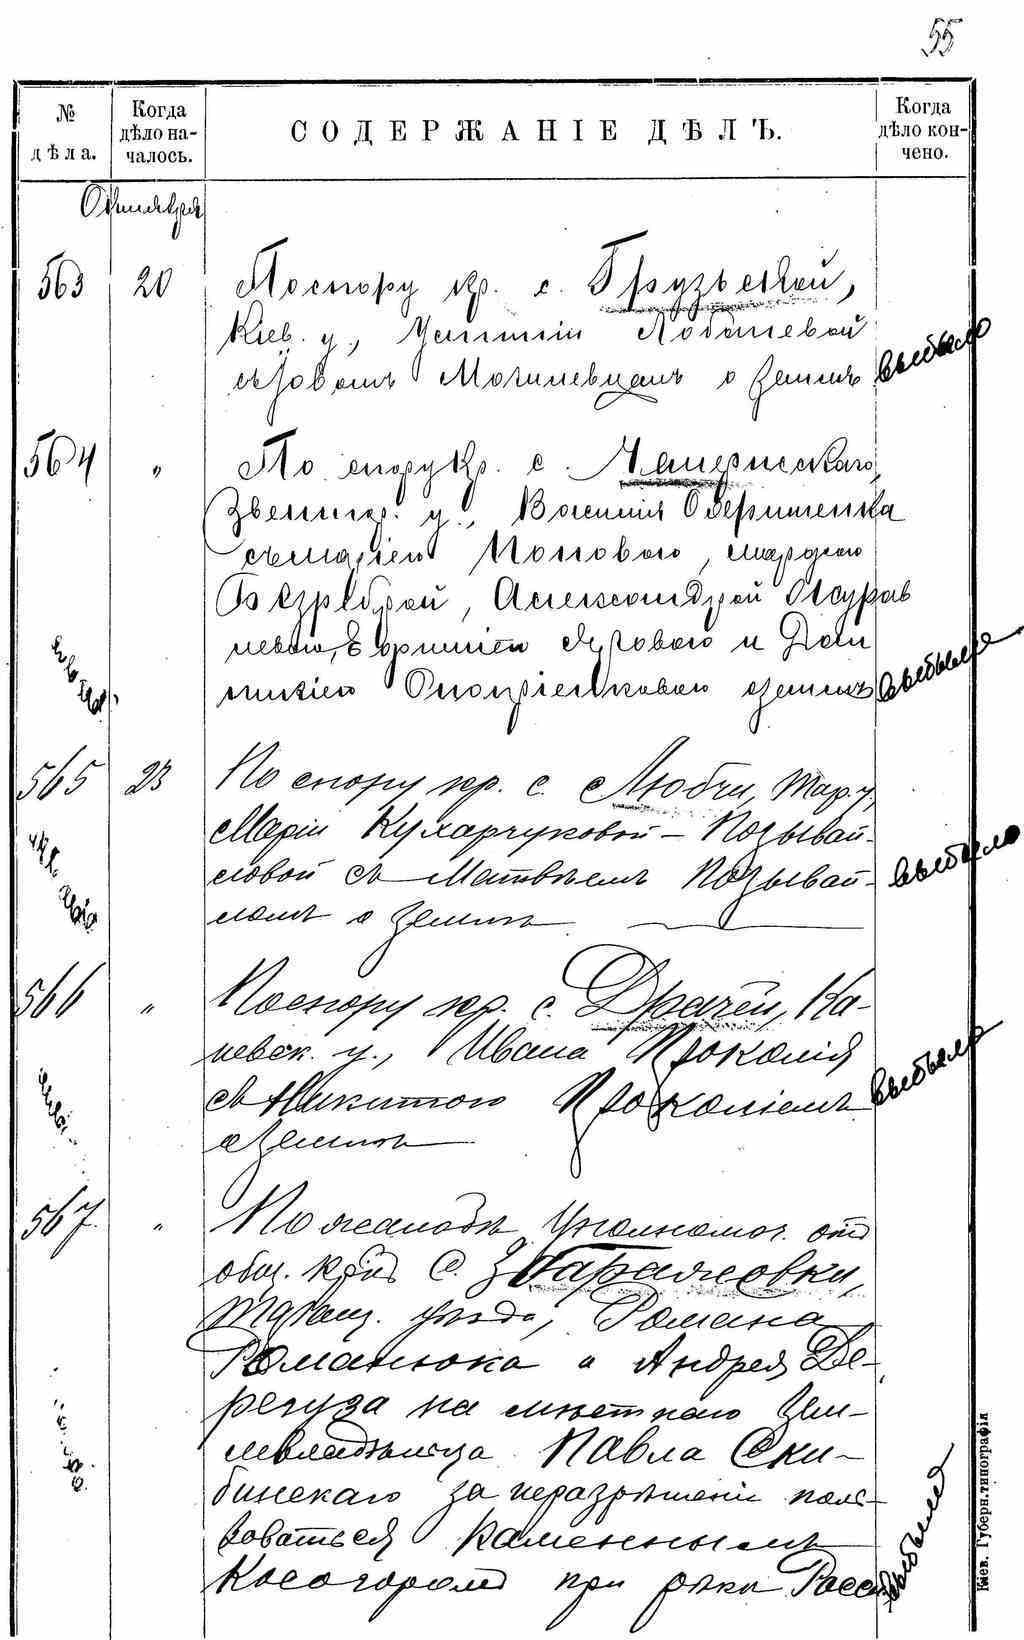 55
№ дѣла.
Когда дѣло на-
чалось.
СОДЕРЖАНІЕ ДѢЛЪ.
Когда
дѣло кон-
чено.
Октября
563 20 По спору кр. с. Грузьской,
Кіев. у., Устиніи Лобачевой
съ Іовомъ Могилевцемъ о землѣ выбыло
564 " По спору кр. с.
Звенигр. у., Василія
съ Маріею Поповою,
Александрой Журав
левою, и Дом
никіею о землѣ выбыло
565 23 По спору кр. с. Любчи, Тар. у.,
Маріи Кухарчуковой - Позывай-
ловой съ Матвѣемъ Позывай-
ломъ о землѣ выбыло
566 " По спору кр. с. Драчей, Ка-
невск. у., Ивана Прокопія
съ Никитою Прокопіемъ
о землѣ выбыло
567. " По жалобѣ Уполномоч. отъ
общ. кр. с. Збаражовки,
Таращ. уѣзда, Романа
Романюка и Андрея Де-
регуза на мѣстнаго зем-
левладѣльца Павла Ски-
бинскаго за неразрѣшеніе поль-
зоваться каменнымъ
косогоромъ при рѣки Росси. выбыло
Кіев. Губерн. типографія